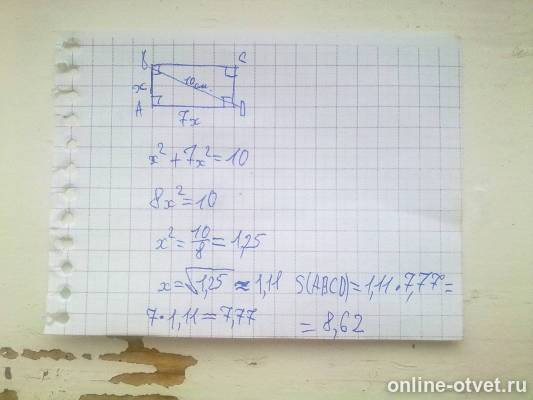 B C
x 10 см
A D
7x
x² + 7x² = 10
8x² = 10
x² = 10/8 = 1,25
x = √1,25 ≈ 1,11 S(ABCD) = 1,11 · 7,77 =
7 · 1,11 = 7,77 = 8,62
online-otvet.ru